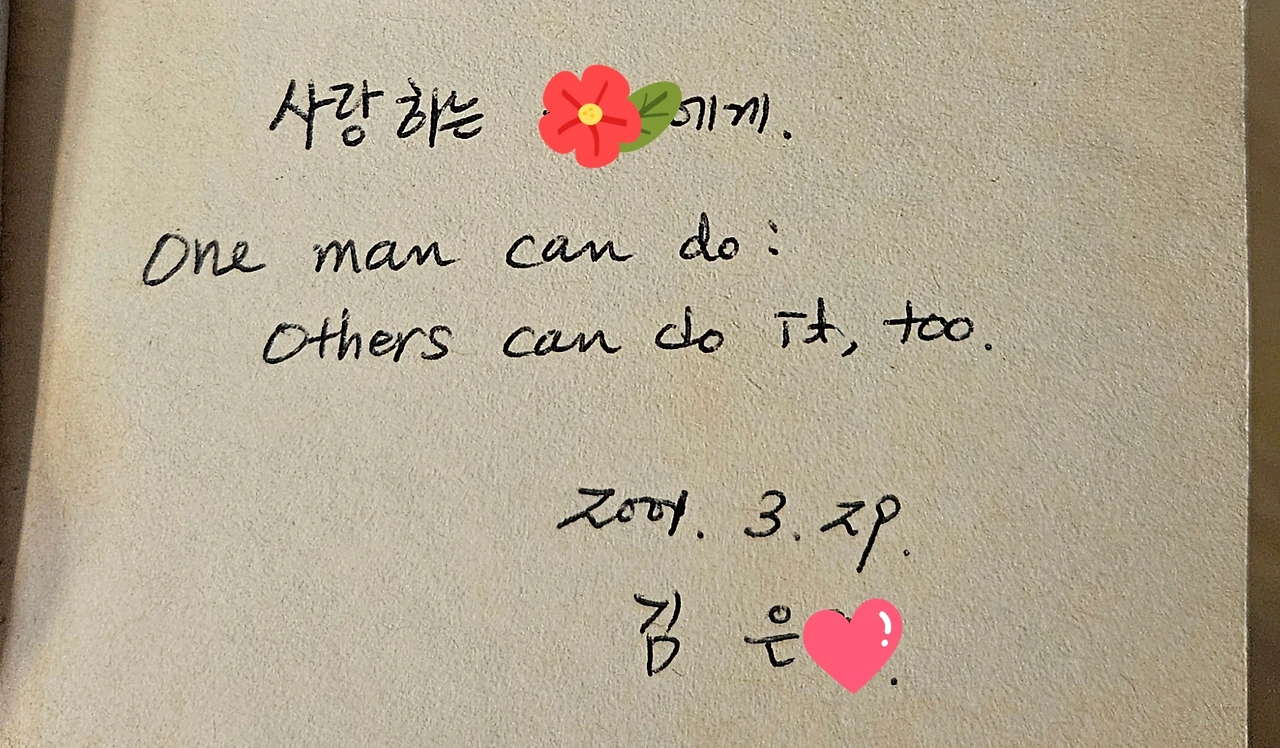 사랑하는 에게.
One man can do:
Others can do it, too.
2001. 3. 29.
김 은 .